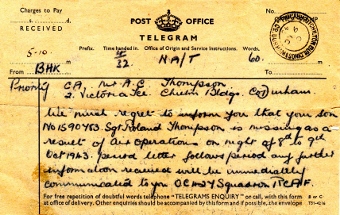 Charges to Pay
RECEIVED
POST OFFICE
TELEGRAM
Prefix. Time handed in. Office of Origin and Service Instructions. Words.
5-10
32 N/A/T 60.
From BHX To
Priority CA. Mr A.C. Thompson
2. Victoria Tce Bldgs. Co Durham.
We must regret to inform you that your son
No 1590483 Sgt Roland Thompson is missing as a
result of Air Operations on night of 8th to 9th
Oct 1943. period letter follows period any further
information received will be immediately
communicated to you OC 427 Squadron RCAF.
For free repetition of doubtful words telephone "TELEGRAMS ENQUIRY" or call, with this form
at office of delivery. Other enquiries should be accompanied by this form and, if possible, the envelope